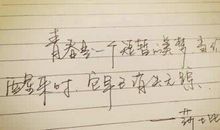 青春是一个短暂的美梦 当你
醒来时,它早已消失无踪
一莎士比